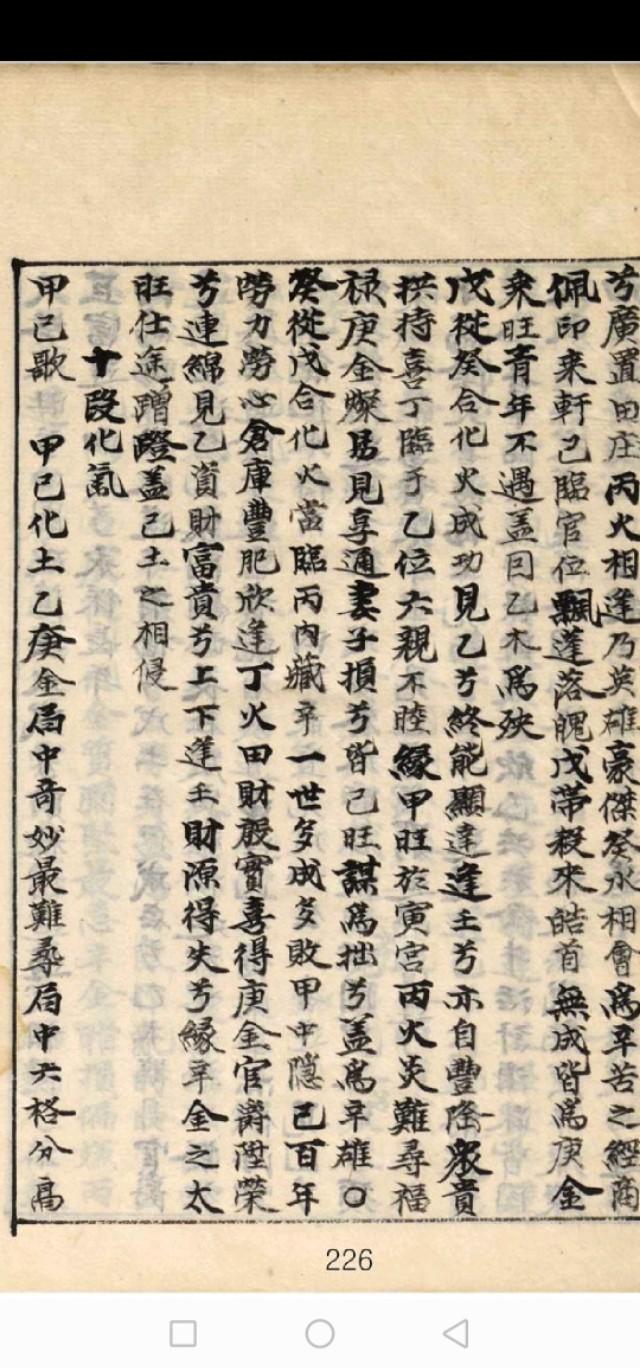 兮廣置田庄丙火相逢乃英雄豪傑癸水相會爲辛苦之經商
佩印乘軒己臨官位飄蓬落魄戊帶殺來皓首無成皆爲庚金
乘旺青年不遇盖因乙木爲殃
戊從癸合化火成功見乙兮終能顯達逢壬兮亦自豐隆衆貴
拱持喜丁臨于乙位六親不睦縁甲旺於寅宮丙火炎難尋福
禄庚金燦易見享通妻子損兮皆己旺謀爲拙兮盖爲辛雄〇
癸從戊合化火當臨丙內藏辛一世多成多敗甲中隠己百年
勞力勞心倉庫豐肥欣逢丁火田財殷實喜得庚金官爵陞榮
兮連綿見乙資財富貴兮上下逢壬財源得失兮縁辛金之太
旺仕途蹭蹬盖己土之相侵
十叚化氣
甲己歌 甲己化土乙庚金局中竒妙最難尋局中六格分高
226